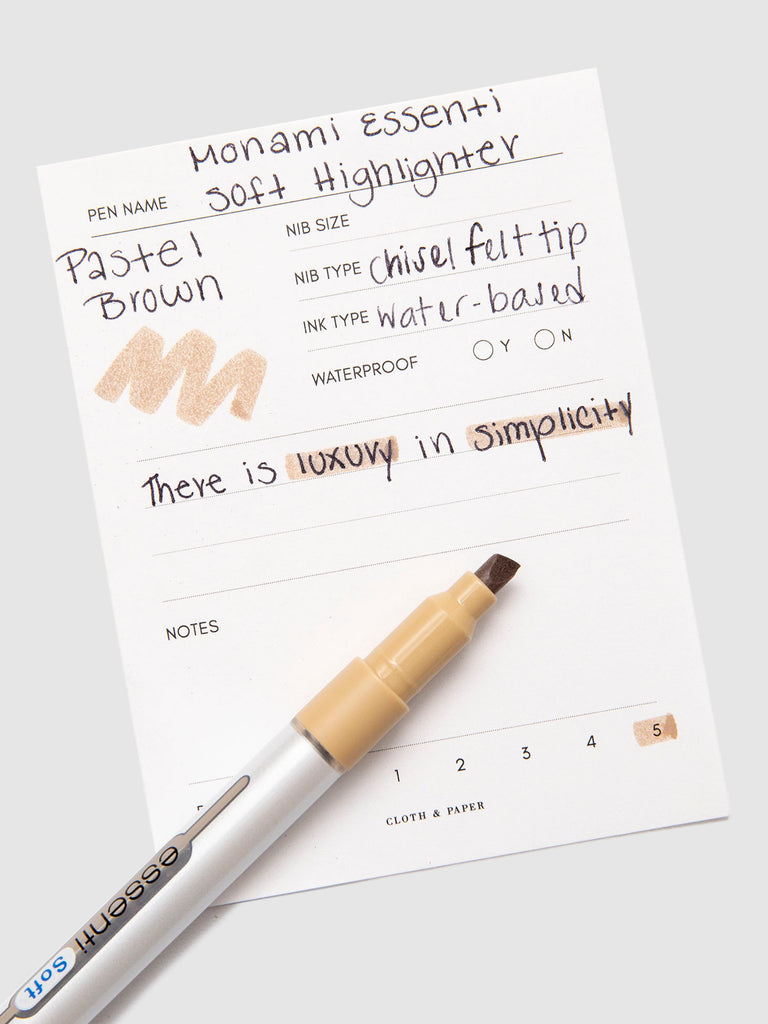 Monami Essenti
PEN NAME Soft Highlighter
Pastel
Brown
NIB SIZE
NIB TYPE chisel felt tip
INK TYPE water-based
WATERPROOF Y N
There is luxury in simplicity
NOTES
1 2 3 4 5
CLOTH & PAPER
essenti
Soft